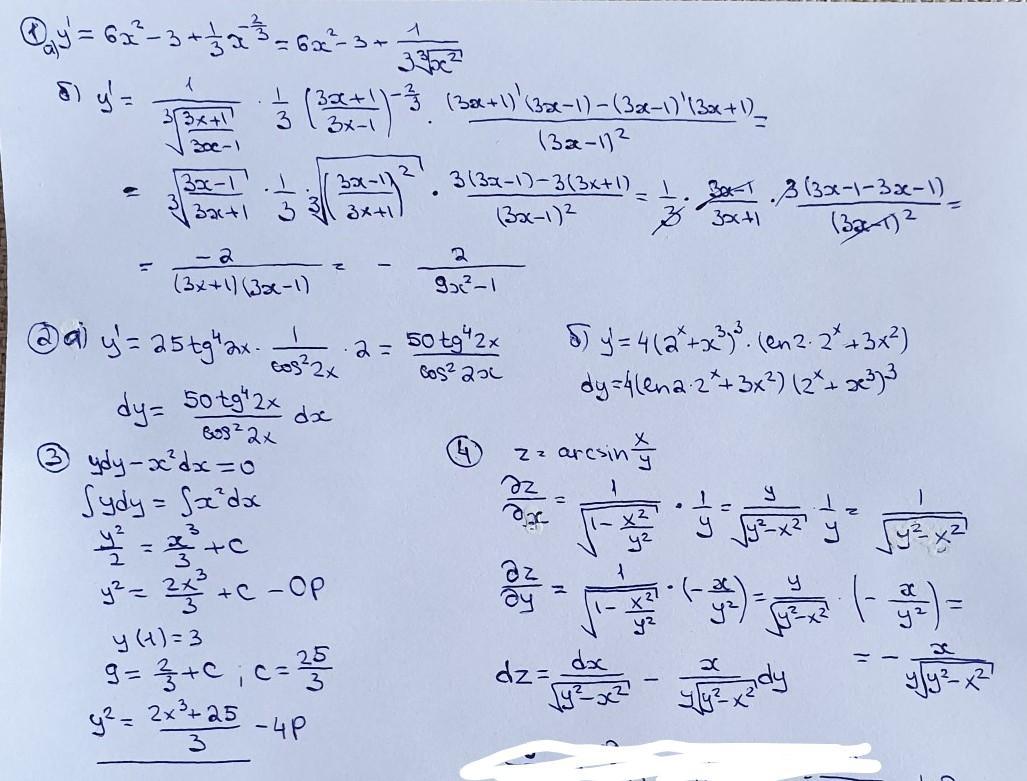 ① a) y' = 6x² - 3 + 1/3 x^(-2/3) = 6x² - 3 + 1/(3∛x²)
б) y' = 1/∛((3x+1)/(3x-1)) · 1/3 ((3x+1)/(3x-1))^(-2/3) · ((3x+1)'(3x-1) - (3x-1)'(3x+1))/(3x-1)² =
= ∛((3x-1)/(3x+1)) · 1/3 · ∛(((3x-1)/(3x+1))²) · (3(3x-1) - 3(3x+1))/(3x-1)² = 1/3 · (3x-1)/(3x+1) · 3(3x-1-3x-1)/(3x-1)² =
= -2/((3x+1)(3x-1)) = - 2/(9x²-1)
② a) y' = 25tg⁴2x · 1/cos²2x · 2 = 50tg⁴2x/cos²2x
dy = 50tg⁴2x/cos²2x dx
б) y' = 4(2ˣ+x³)³ · (ln2·2ˣ+3x²)
dy = 4(ln2·2ˣ+3x²)(2ˣ+x³)³
③ ydy - x²dx = 0
∫ydy = ∫x²dx
y²/2 = x³/3 + C
y² = 2x³/3 + C - ОР
y(1) = 3
9 = 2/3 + C ; C = 25/3
y² = (2x³+25)/3 - ЧР
④ z = arcsin x/y
∂z/∂x = 1/√(1 - x²/y²) · 1/y = y/√(y²-x²) · 1/y = 1/√(y²-x²)
∂z/∂y = 1/√(1 - x²/y²) · (-x/y²) = y/√(y²-x²) · (-x/y²) =
= - x/(y√(y²-x²))
dz = dx/√(y²-x²) - x/(y√(y²-x²)) dy